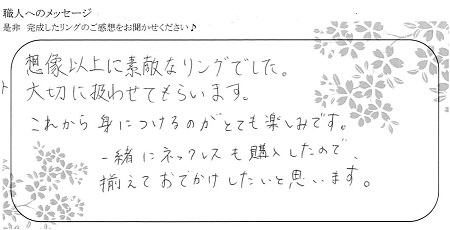 職人へのメッセージ
是非 完成したリングのご感想をお聞かせください♪
想像以上に素敵なリングでした。
大切に扱わせてもらいます。
これから身につけるのがとても楽しみです。
一緒にネックレスも購入したので、
揃えておでかけしたいと思います。